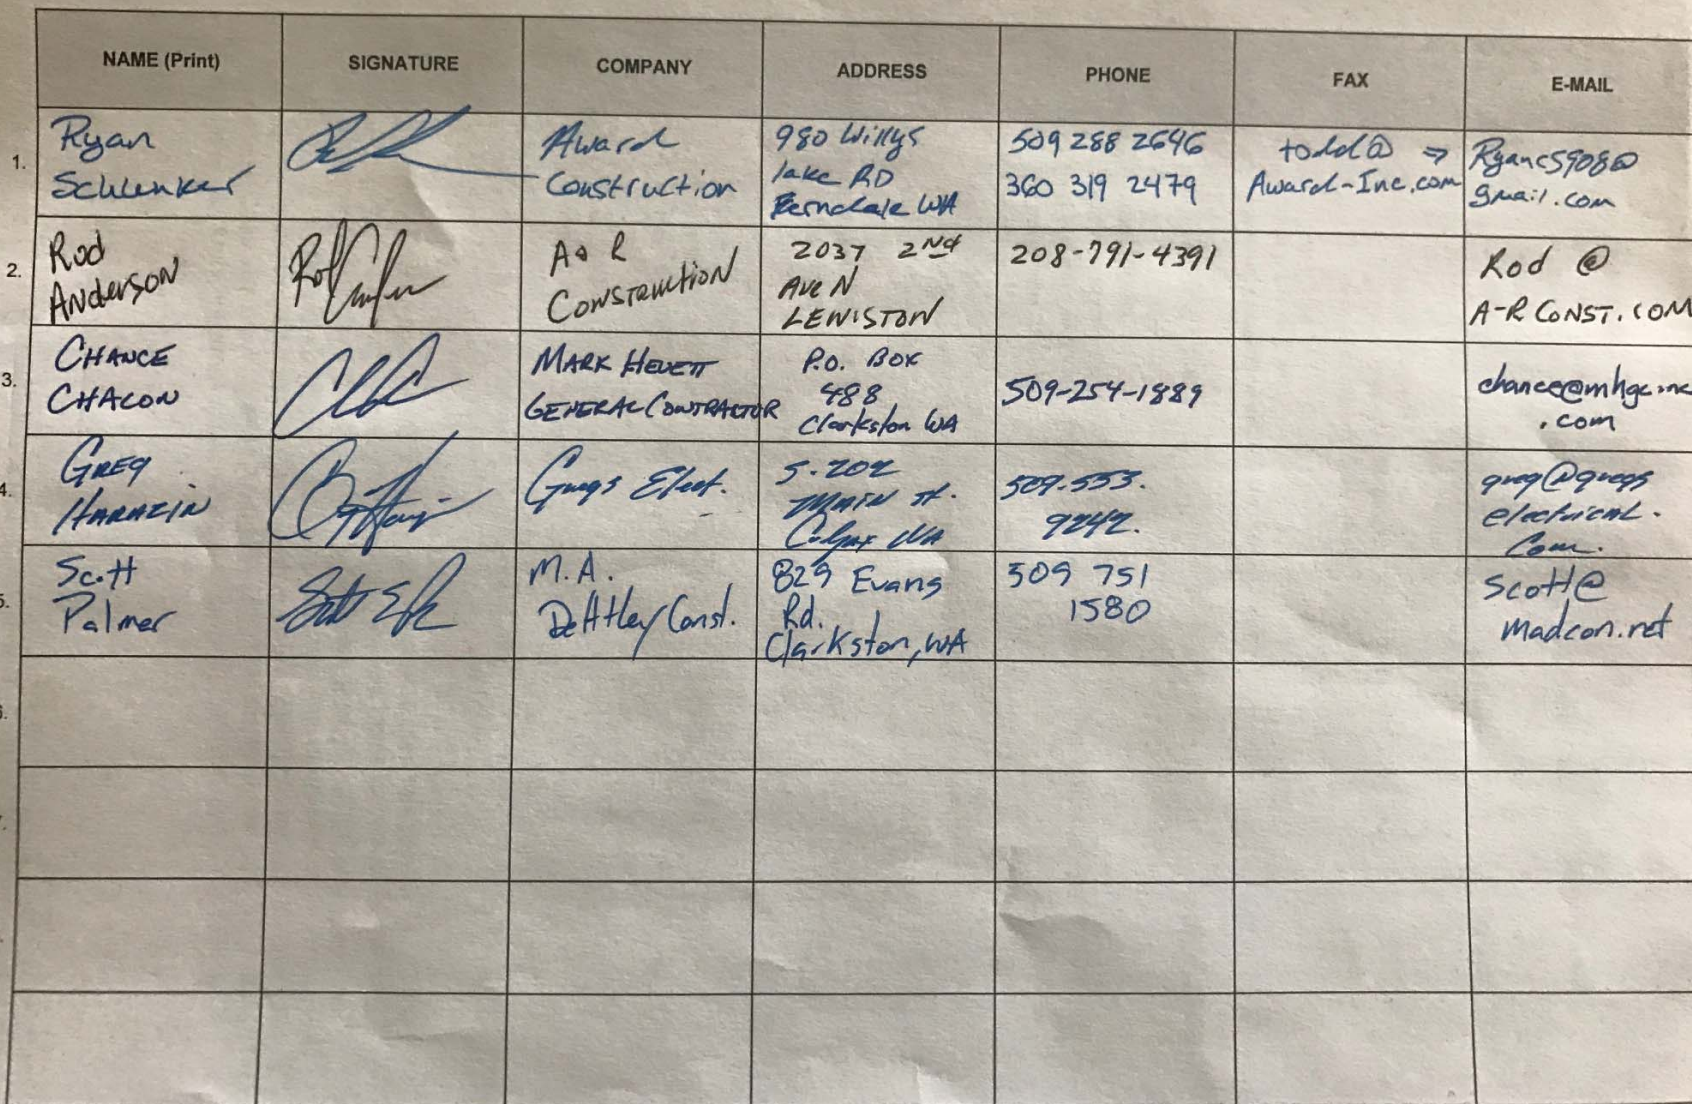 NAME (Print) SIGNATURE COMPANY ADDRESS PHONE FAX E-MAIL
1.
Ryan
Schlenker
Award
Construction
980 Willys
lake RD
Ferndale WA
509 288 2646
360 319 2479
todd@ ⇒
Award-Inc.com
Ryancs908@
gmail.com
2.
Rod
Anderson
A & R
Construction
2037 2nd
Ave N
LEWISTON
208-791-4391
Rod @
A-R CONST.COM
3.
CHANCE
CHACON
MARK HEVETT
GENERAL CONTRACTOR
P.O. BOX
488
Clarkston WA
509-254-1889
chance@mhgcinc
.com
4.
GREG
HARAZIN
Gregs Elect.
S. 202
MAIN St.
Colfax WA
509.553.
9242.
greg@gregs
electrical.
Com.
5.
Scott
Palmer
M.A.
DeAtley Const.
829 Evans
Rd.
Clarkston, WA
509 751
1580
Scott@
madcon.net
6.
7.